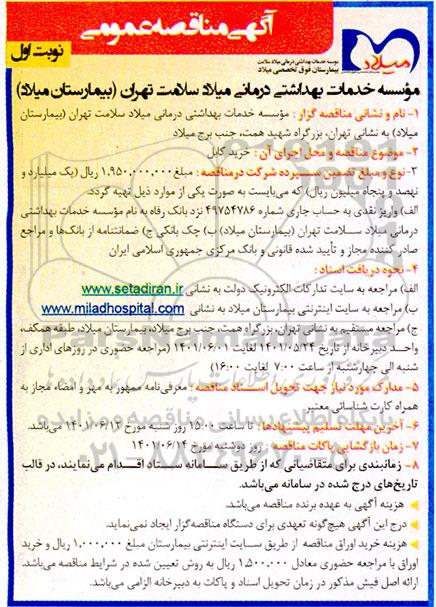 آگهی مناقصه عمومی
نوبت اول
میلاد
موسسه خدمات بهداشتی درمانی میلاد سلامت
بیمارستان فوق تخصصی میلاد
مؤسسه خدمات بهداشتی درمانی میلاد سلامت تهران (بیمارستان میلاد)
۱- نام و نشانی مناقصه گزار : مؤسسه خدمات بهداشتی درمانی میلاد سلامت تهران (بیمارستان
میلاد) به نشانی تهران، بزرگراه شهید همت، جنب برج میلاد
۲- موضوع مناقصه و محل اجرای آن : خرید کابل
۳- نوع و مبلغ تضمین سپرده شرکت درمناقصه : مبلغ ۱،۹۵۰،۰۰۰،۰۰۰ ریال (یک میلیارد و
نهصد و پنجاه میلیون ریال) که می‌بایست به صورت یکی از موارد ذیل تهیه گردد.
الف) واریز نقدی به حساب جاری شماره ۴۹۷۵۴۷۸۶ نزد بانک رفاه به نام مؤسسه خدمات بهداشتی
درمانی میلاد سلامت تهران (بیمارستان میلاد) ب) چک بانکی ج) ضمانتنامه از بانک‌ها و مراجع
صادر کننده مجاز و تأیید شده قانونی و بانک مرکزی جمهوری اسلامی ایران
۴- نحوه دریافت اسناد :
الف) مراجعه به سایت تدارکات الکترونیک دولت به نشانی www.setadiran.ir
ب) مراجعه به سایت اینترنتی بیمارستان میلاد به نشانی www.miladhospital.com
ج) مراجعه مستقیم به نشانی تهران، بزرگراه همت، جنب برج میلاد، بیمارستان میلاد، طبقه همکف،
واحد دبیرخانه از تاریخ ۱۴۰۱/۰۵/۲۴ لغایت ۱۴۰۱/۰۶/۰۱ (مراجعه حضوری در روزهای اداری از
شنبه الی چهارشنبه از ساعت ۷:۰۰ لغایت ۱۶:۰۰)
۵- مدارک مورد نیاز جهت تحویل اسناد مناقصه : معرفی‌نامه ممهور به مهر و امضاء مجاز به
همراه کارت شناسائی معتبر
۶- آخرین مهلت تسلیم پیشنهادها : تا ساعت ۱۵:۰۰ روز شنبه مورخ ۱۴۰۱/۰۶/۱۲ می‌باشد.
۷- زمان بازگشایی پاکات مناقصه : روز دوشنبه مورخ ۱۴۰۱/۰۶/۱۴
۸- زمانبندی برای متقاضیانی که از طریق سامانه ستاد اقدام می‌نمایند، در قالب
تاریخ‌های درج شده در سامانه می‌باشد.
هزینه آگهی به عهده برنده مناقصه می‌باشد.
درج این آگهی هیچ‌گونه تعهدی برای دستگاه مناقصه‌گزار ایجاد نمی‌نماید.
هزینه خرید اوراق مناقصه از طریق سایت اینترنتی بیمارستان مبلغ ۱،۰۰۰،۰۰۰ ریال و خرید
اوراق با مراجعه حضوری معادل ۱،۵۰۰،۰۰۰ ریال به روش تعیین شده در شرایط مناقصه می‌باشد.
ارائه اصل فیش مذکور در زمان تحویل اسناد و پاکات به دبیرخانه الزامی می‌باشد.